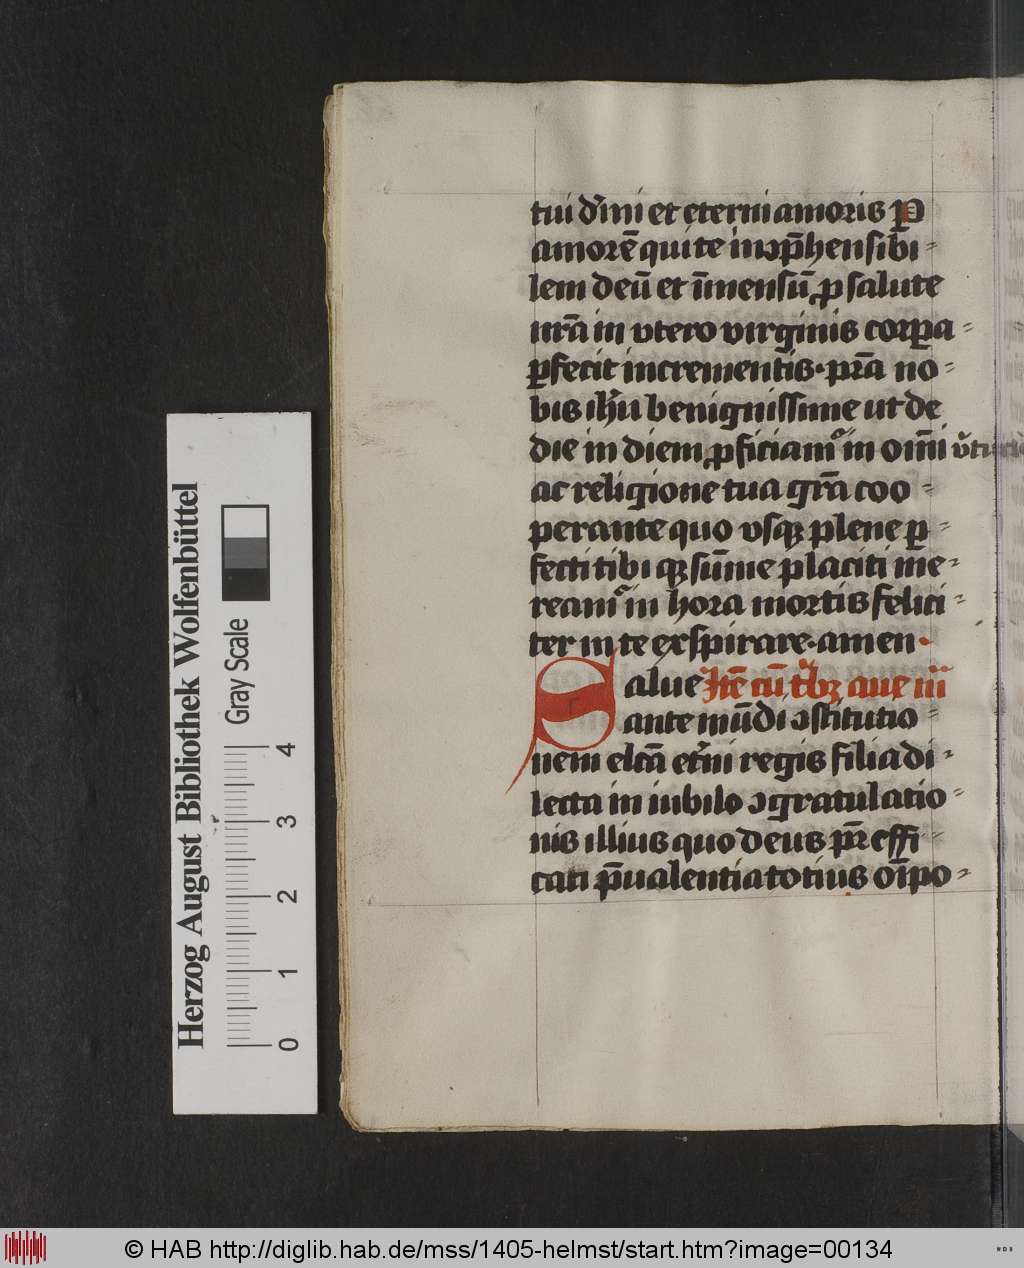 tui dīuini et eterni amoris P
amorē qui te incōp̄hensibi
lem deū et īmensū ꝓ salute
nr̄a in vtero virginis corpꝑa
ꝑfecit incrementis · pr̄a no
bis ih̄u benignissime ut de
die in diem ꝓficiam᷒ in om̄i v̓tu
ac religione tua gr̄a coo
perante quo vsqꝫ plene per
fecti tibi qꝫ sūme placiti me
ream᷒ in hora mortis felici
ter in te exspirare · amen ·
Salue Itē cū t̓bꝫ aue m̄
ante mūdi ↄstitutio
nem elc̄a et̓ni regis filia di
lecta in iubilo ↄgratulatio
nis illius quo deus pr̄ effi
cati p̄ualentia totius om̄ipo
Herzog August Bibliothek Wolfenbüttel
Gray Scale
0 1 2 3 4
© HAB http://diglib.hab.de/mss/1405-helmst/start.htm?image=00134